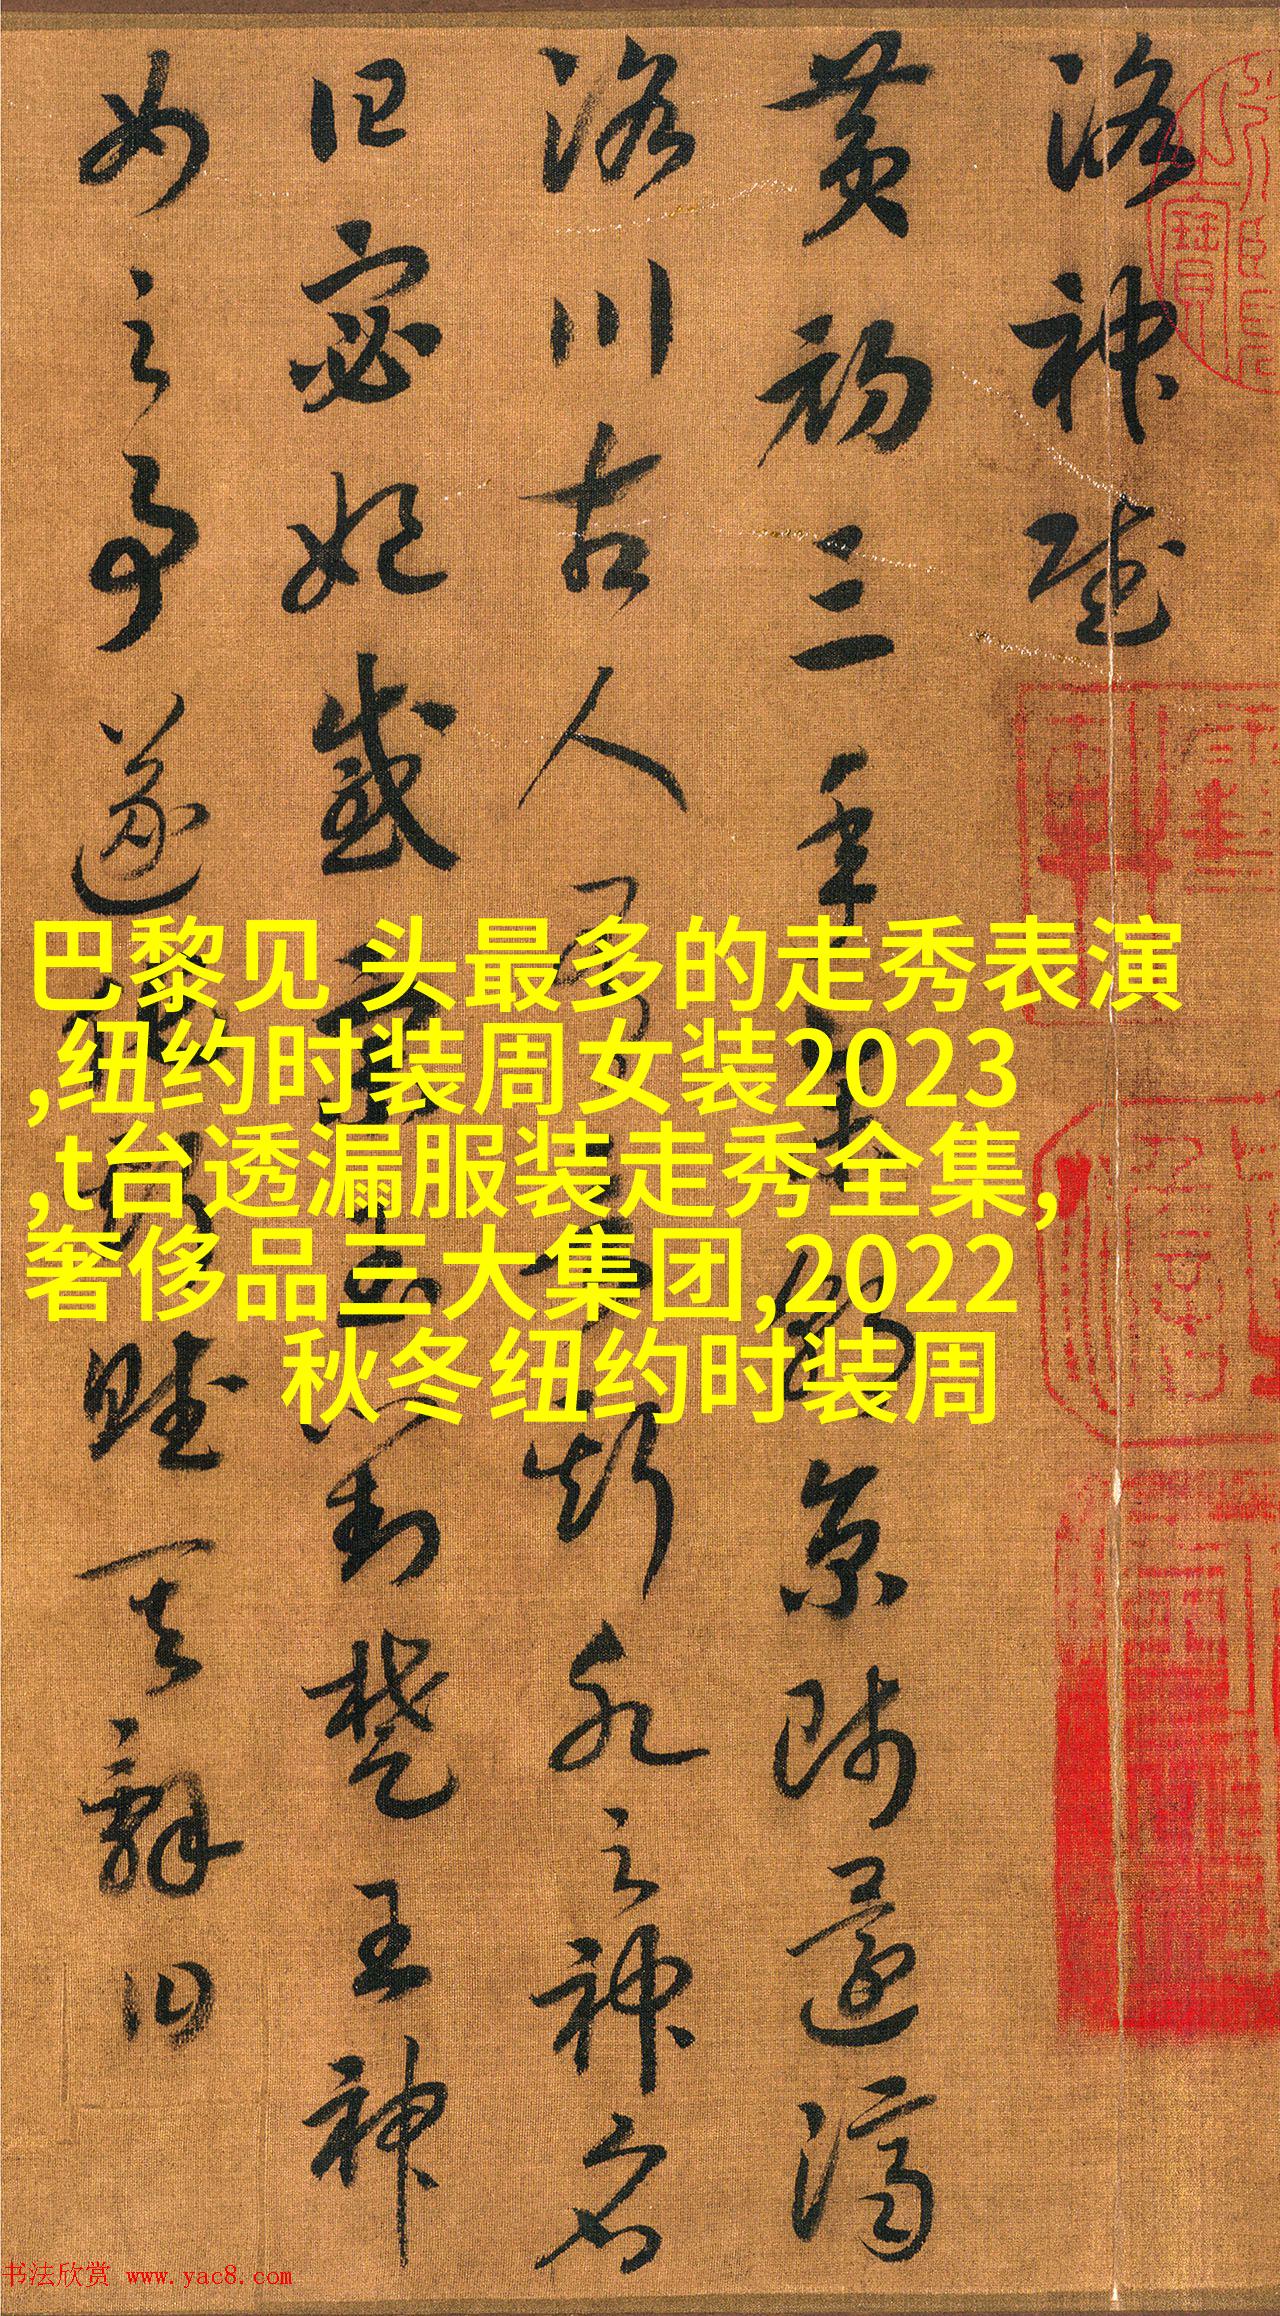 洛神賦
黄初三年余朝京師還濟
洛川古人有言斯水之神名
曰宓妃感宋玉對楚王神
女之事遂作斯賦其辭曰
巴黎见 头最多的走秀表演
,纽约时装周女装2023
,t台透漏服装走秀全集,
奢侈品三大集团,2022
秋冬纽约时装周
书法欣赏 www.yac8.com